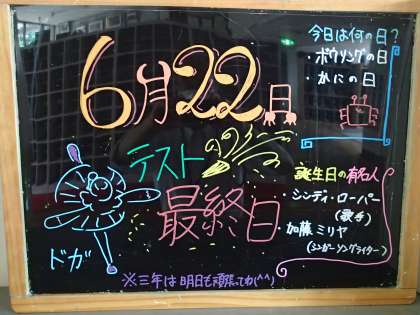 6月22日
今日は何の日?
・ボウリングの日
・かにの日
テスト
最終日
誕生日の有名人
・シンディ・ローパー
(歌手)
・加藤ミリヤ
(シンガーソングライター)
ドガ
※三年は明日も頑張ってね(^^)